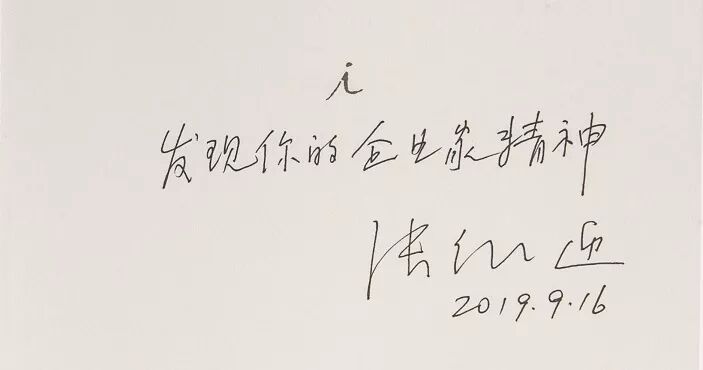 i
发现你的企业家精神
张
2019.9.16